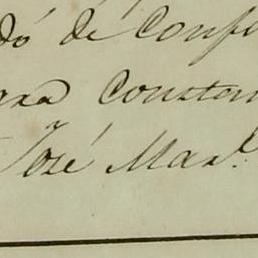 dó de Conf
ara Constan
José Mar.l